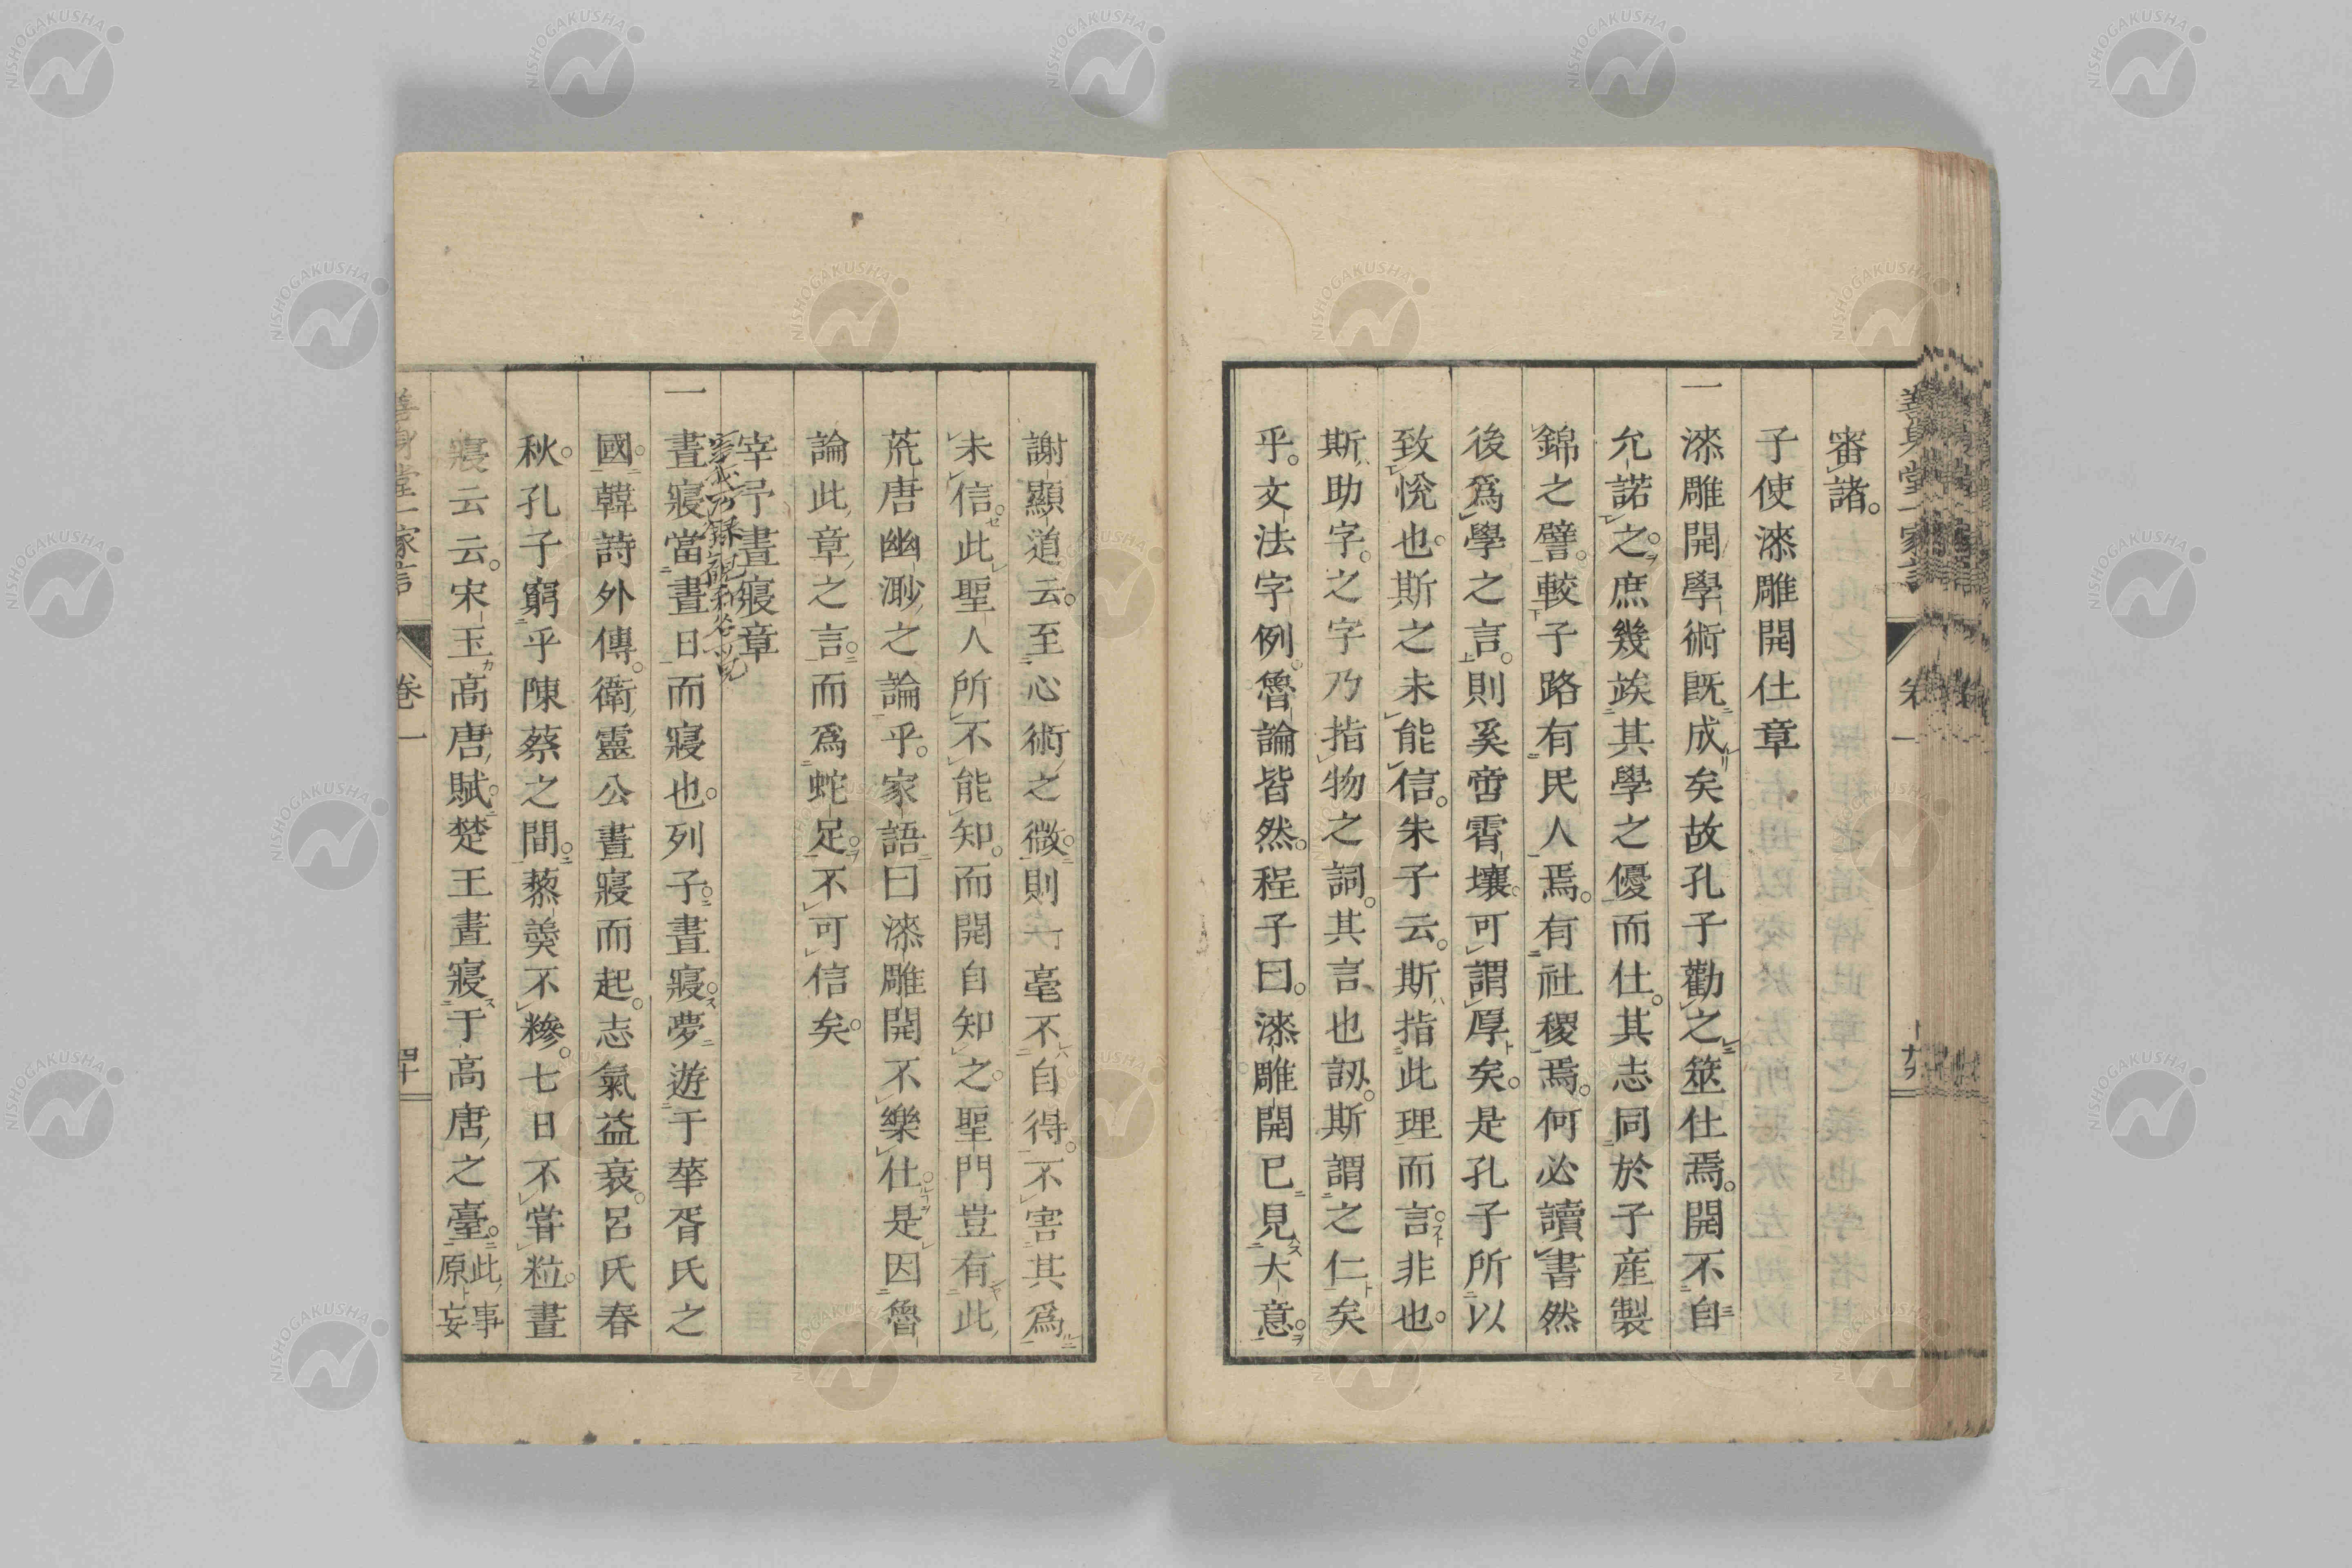 審諸。
子使漆雕開仕章
一漆雕開學術既成矣故孔子勸之筮仕焉。開不自
允諾之。庶幾俟其學之優而仕。其志同於子產製
錦之譬。較子路有民人焉。有社稷焉。何必讀書然
後爲學之言。則奚啻霄壤。可謂厚矣。是孔子所以
致悅也。斯之未能信。朱子云。斯指此理而言。非也。
斯助字。之字乃指物之詞。其言也訒。斯謂之仁矣
乎。文法字例。魯論皆然。程子曰。漆雕開已見大意。
謝顯道云。至心術之微。則一毫不自得。不害其爲
未信。此聖人所不能知。而開自知之。聖門豈有此
荒唐幽渺之論乎。家語曰漆雕開不樂仕。是因魯
論此章之言。而爲蛇足。不可信矣。
宰予晝寢章
一晝寢當晝日而寢也。列子。晝寢。夢遊于華胥氏之
國。韓詩外傳。衛靈公晝寢而起。志氣益衰。呂氏春
秋。孔子窮乎陳蔡之間。藜羹不糝。七日不嘗粒。晝
寢云云。宋玉高唐賦。楚王晝寢于高唐之臺。此事原妄
善身堂一家言
卷一
四十
NISHOGAKUSHA